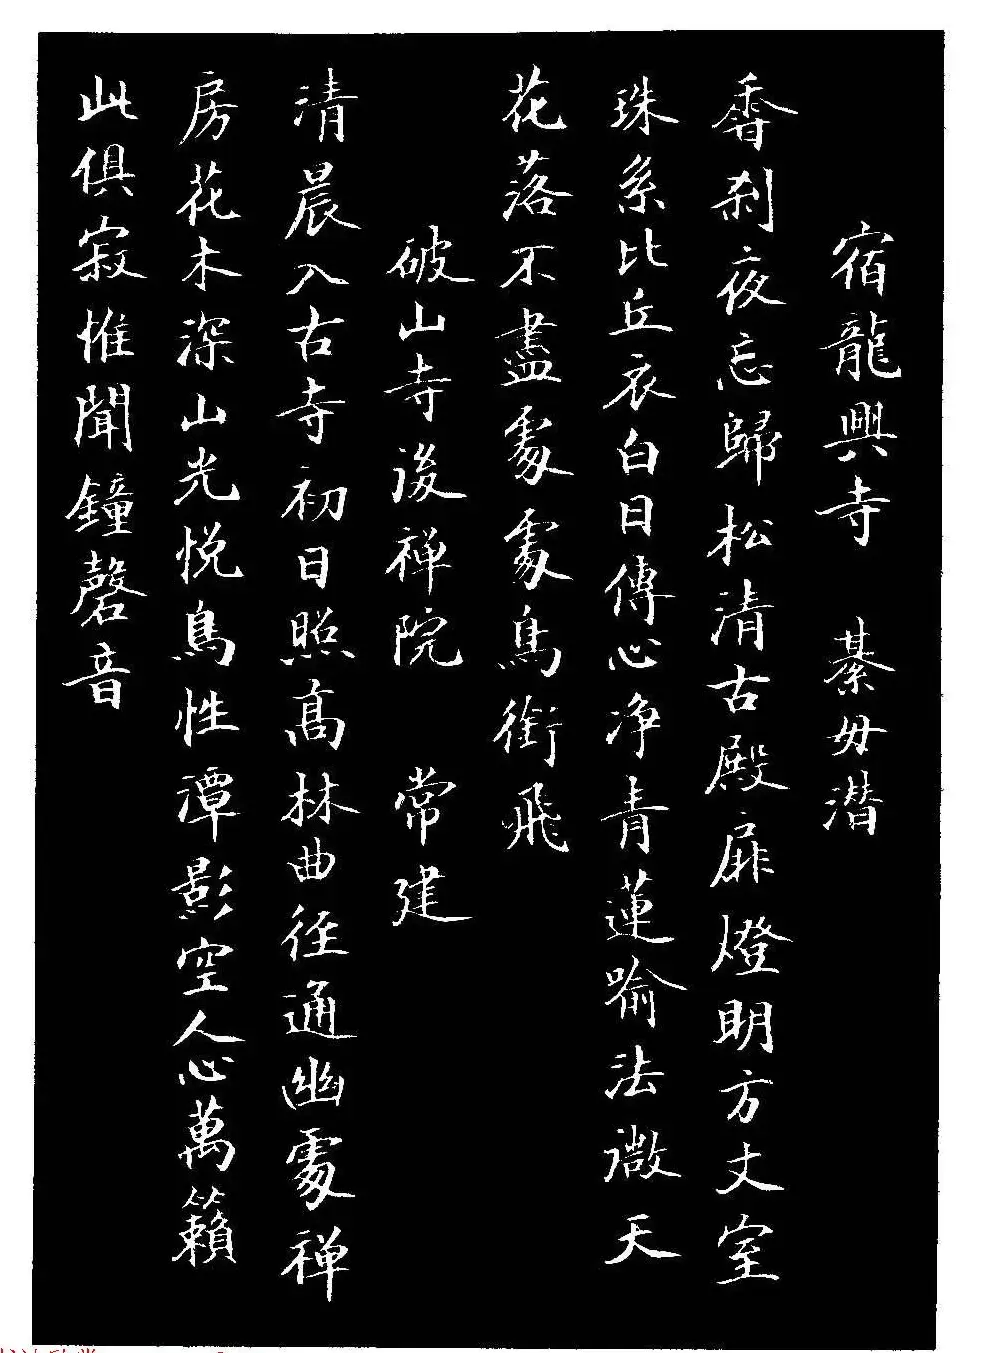 宿龍興寺 綦毋潜
香刹夜忘歸松清古殿扉燈明方丈室
珠系比丘衣白日傳心净青蓮喻法微天
花落不盡處處鳥銜飛
破山寺後禅院 常建
清晨入古寺初日照高林曲徑通幽處禅
房花木深山光悦鳥性潭影空人心萬籟
此俱寂惟聞鐘磬音